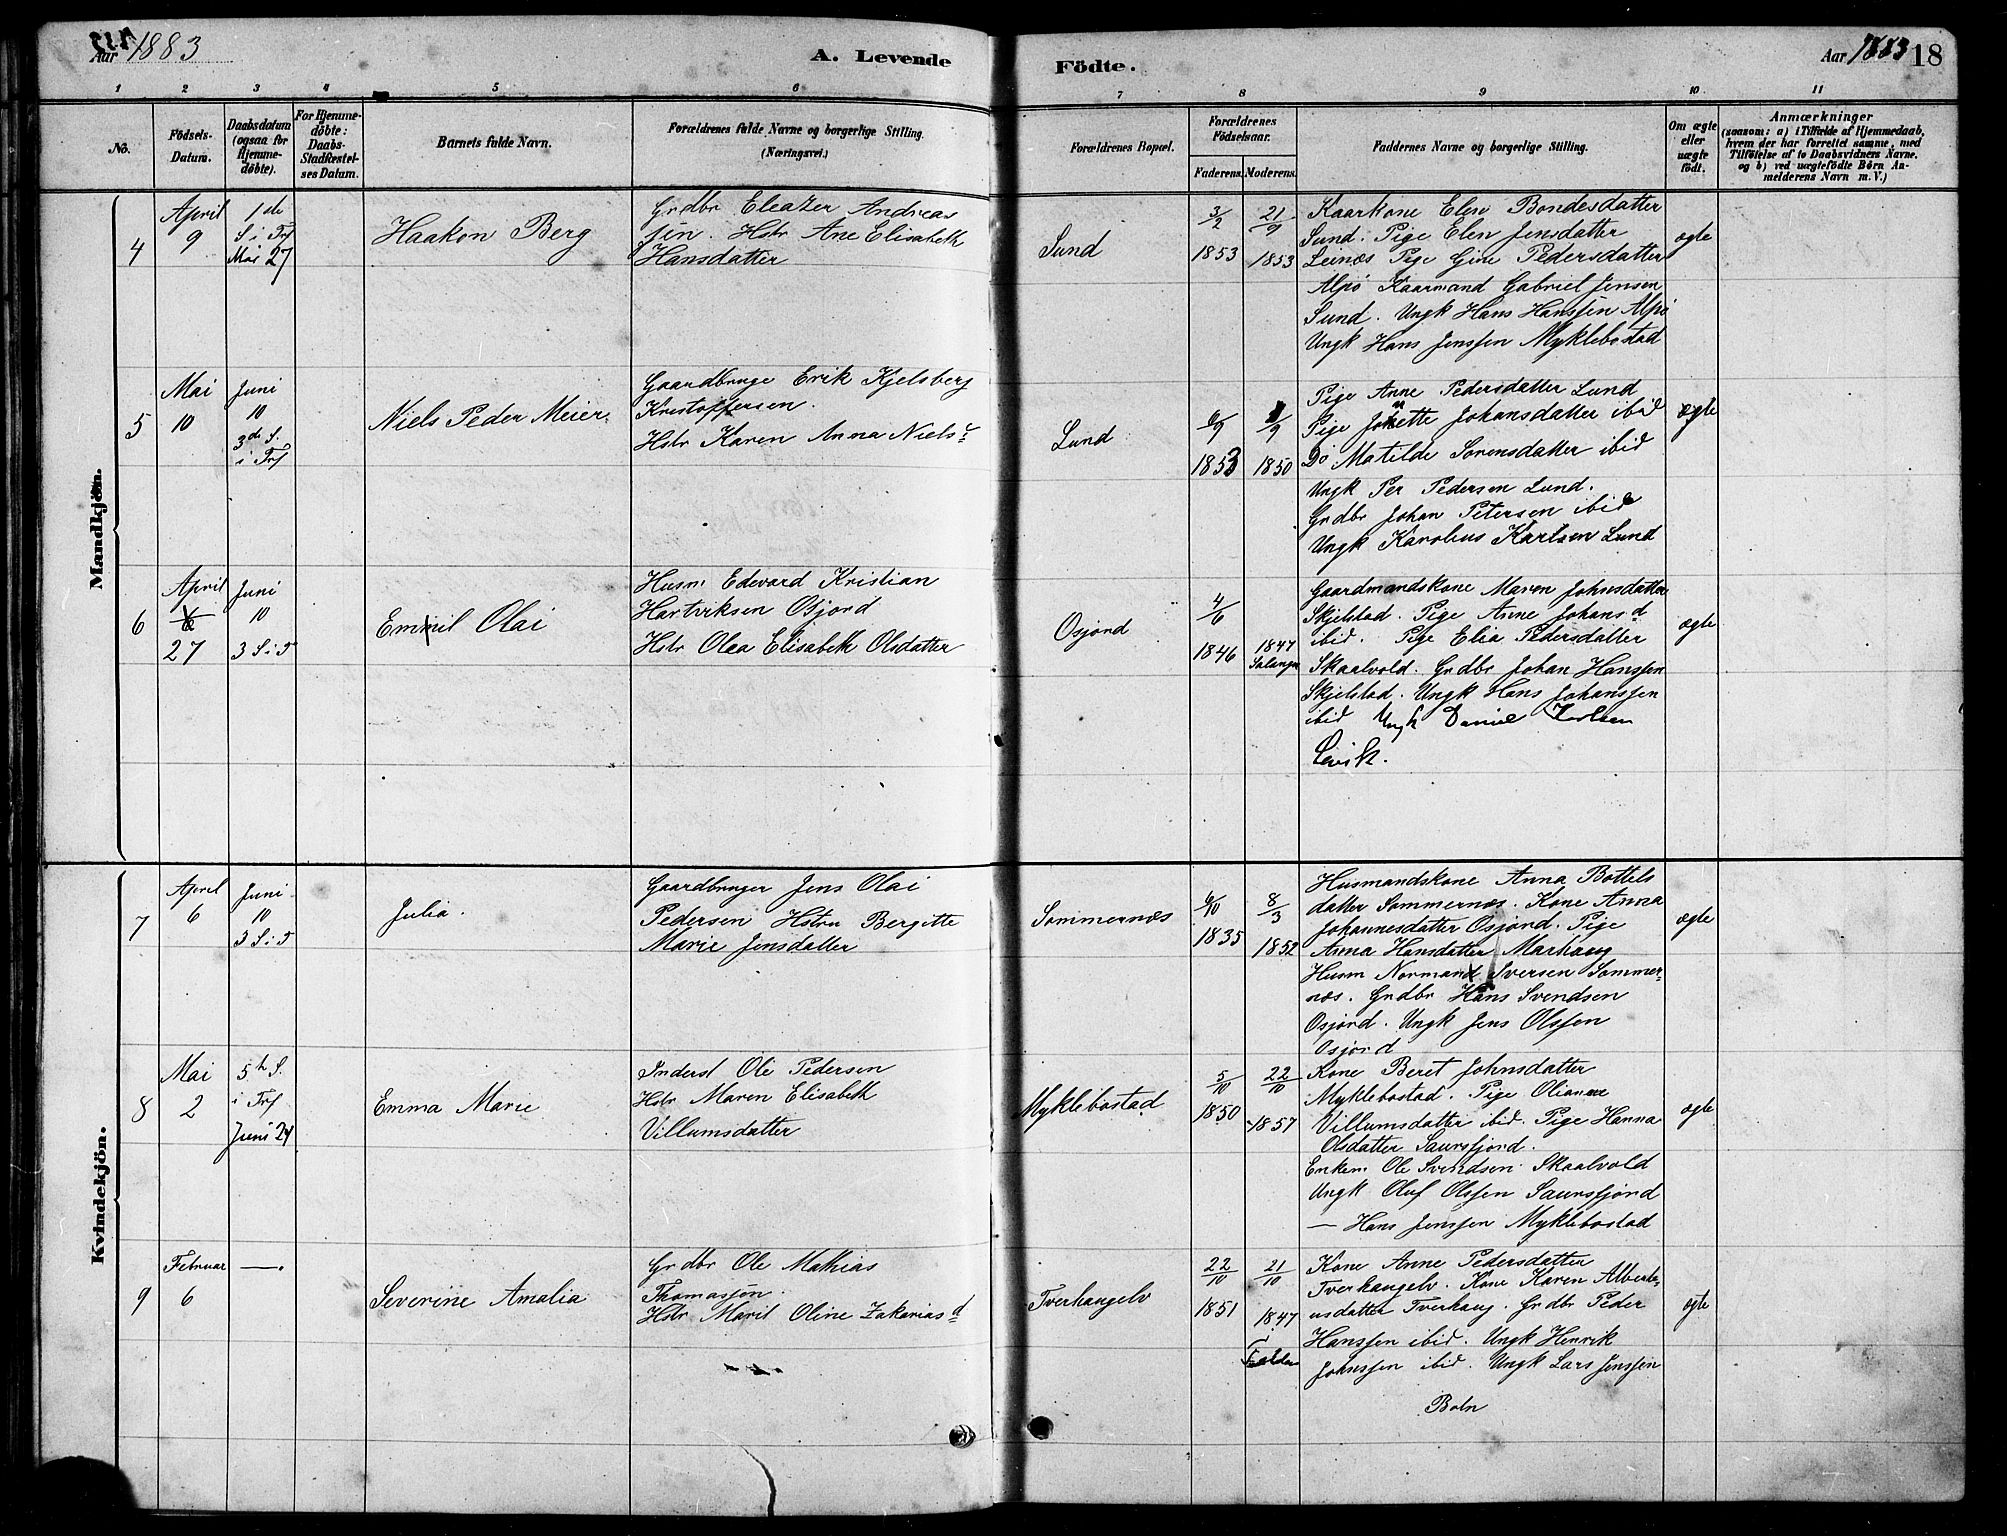 Aar 1883
A. Levende
Födte.
Aar 1883
18
1 2 3 4 5 6 7 8 9 10 11
No.
Födsels-
Datum.
Daabsdatum
(ogsaa for
Hjemme-
döbte).
For Hjemme-
döbte:
Daabs-
Stadfæstel-
ses Datum.
Barnets fulde Navn.
Forældrenes fulde Navne og borgerlige Stilling.
(Næringsvei.)
Forældrenes Bopæl.
Forældrenes
Födselsaar.
Faderens. Moderens.
Faddernes Navne og borgerlige Stilling.
Om ægte
eller
uægte
födt.
Anmærkninger
(saasom: a) i Tilfælde af Hjemmedaab,
hvem der har forrettet samme, med
Tilföielse af to Daabsvidners Navne.
og b) ved uægtefödte Börn An-
melderens Navn m.V.)
Mandkjön.
4
April
9
1de
S i Trf
Mai 27
Haakon Berg
Grdbr Eleazer Andreas
sen. Hstr Ane Elisabeth
Hansdatter
Sund
3/2
1853
21/9
1853
Kaarkone Elen Bondesdatter
Sund. Pige Elen Jensdatter
Leinæs Pige Gine Pedersdatter
Alpö Kaarmand Gabriel Jensen
Sund. Ungk Hans Hanssen Alpö
Ungk Hans Jenssen Myklebostad
ægte
5
Mai
10
Juni
10
3de S.
i Trf
Niels Peder Meier.
Gaardbruge Erik Kjelsberg
Kristoffersen.
Hstr Karen Anna Nielsd
Lund
6/9
1853
1/9
1850
Pige Anne Pedersdatter Lund
Pige Johanette Johansdatter ibid
Do Matilde Sorensdatter ibid
Ungk Per Pedersen Lund.
Grdbr Johan Petersen ibid
Ungk Karolius Karlsen Lund
ægte
6
April
27
Juni
10
3 S i T
Emil Olai
Husm Edevard Kristian
Hartviksen Osjord
Hstr Olea Elisabeth Olsdatter
Osjord
4/6
1846
1847
Salangen
Gaardmandskone Maren Johnsdatter
Skjelstad. Pige Anne Johansd
ibid. Pige Elia Pedersdatter
Skaalvold. Grdbr Johan Hanssen
Skjelstad. Ungk Hans Johanssen
ibid Ungk Daniel Karlsen
Levik.
ægte
Kvindekjön.
7
April
6
Juni
10
3 S i T
Julia.
Gaardbruger Jens Olai
Pedersen Hstru Bergitte
Marie Jensdatter
Sommernæs
6/10
1835
8/3
1852
Husmandskone Anna Bottels
datter Sommernæs. Kone Anna
Johannesdatter Osjord. Pige
Anna Hansdatter Marhaug
Husm Normand Iversen Sommer-
næs. Grdbr Hans Svendsen
Osjord. Ungk Jens Olssen
Osjord
ægte
8
Mai
2
5th S.
i Trf
Juni 24
Emma Marie
Inderst Ole Pedersen
Hstr Maren Elisabeth
Villumsdatter
Myklebostad
5/10
1850
22/10
1857
Kone Beret Johnsdatter
Myklebostad. Pige Olianna
Villumsdatter ibid. Pige Hanna
Olsdatter Saursfjord.
Enkem Ole Svendsen Skaalvold
Ungk Oluf Olssen Saursfjord
— Hans Jenssen Myklebostad
ægte
9
Februar
6
—.
Severine Amalia
Grdbr Ole Mathias
Thomassön.
Hstr Marit Oline Zakariasd
Tverhangelv
22/10
1851
21/10
1847
Kone Anne Pedersdatter
Tverhangelv. Kone Karen Alberti-
usdatter Tverhaug. Grdbr Peder
Hanssen ibid. Ungk Henrik
Johnssen ibid. Ungk Lars Jenssen
Boln
ægte